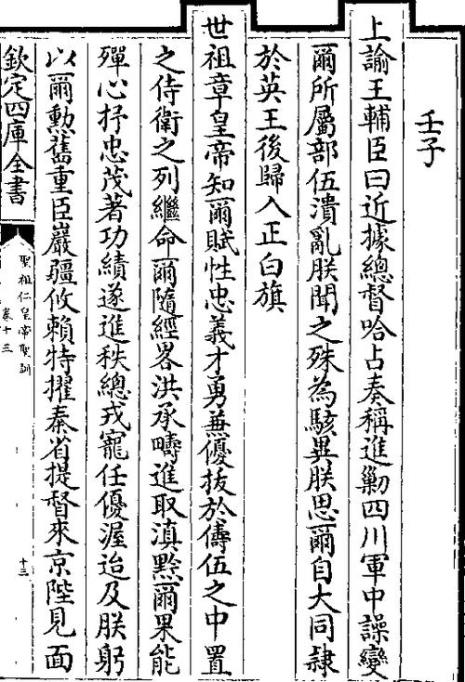 壬子
上諭王輔臣曰近據總督哈占奏稱進勦四川軍中譟變
爾所屬部伍潰亂朕聞之殊為駭異朕思爾自大同隸
於英王後歸入正白旗
世祖章皇帝知爾賦性忠義才勇兼優拔於儔伍之中置
之侍衛之列繼命爾隨經畧洪承疇進取滇黔爾果能
殫心抒忠茂著功績遂進秩總戎寵任優渥迨及朕躬
以爾勲舊重臣巖疆攸賴特擢秦省提督來京陛見面
欽定四庫全書
聖祖仁皇帝聖訓
卷十三
十三